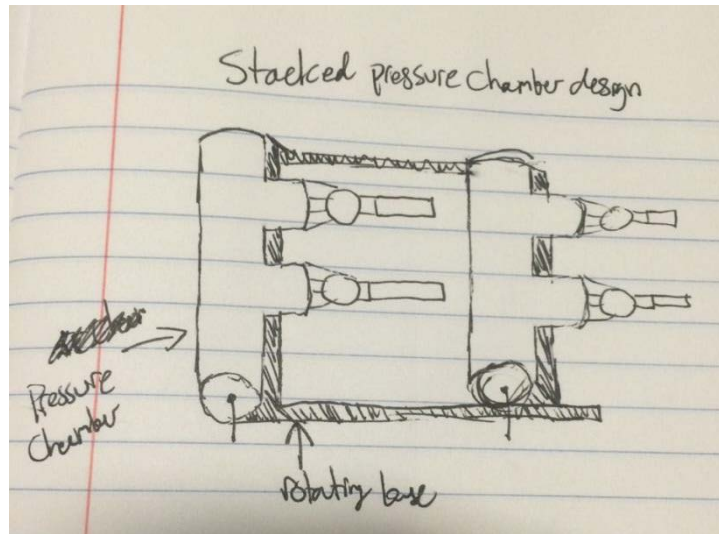 Stacked pressure chamber design
Pressure
Chamber
rotating base